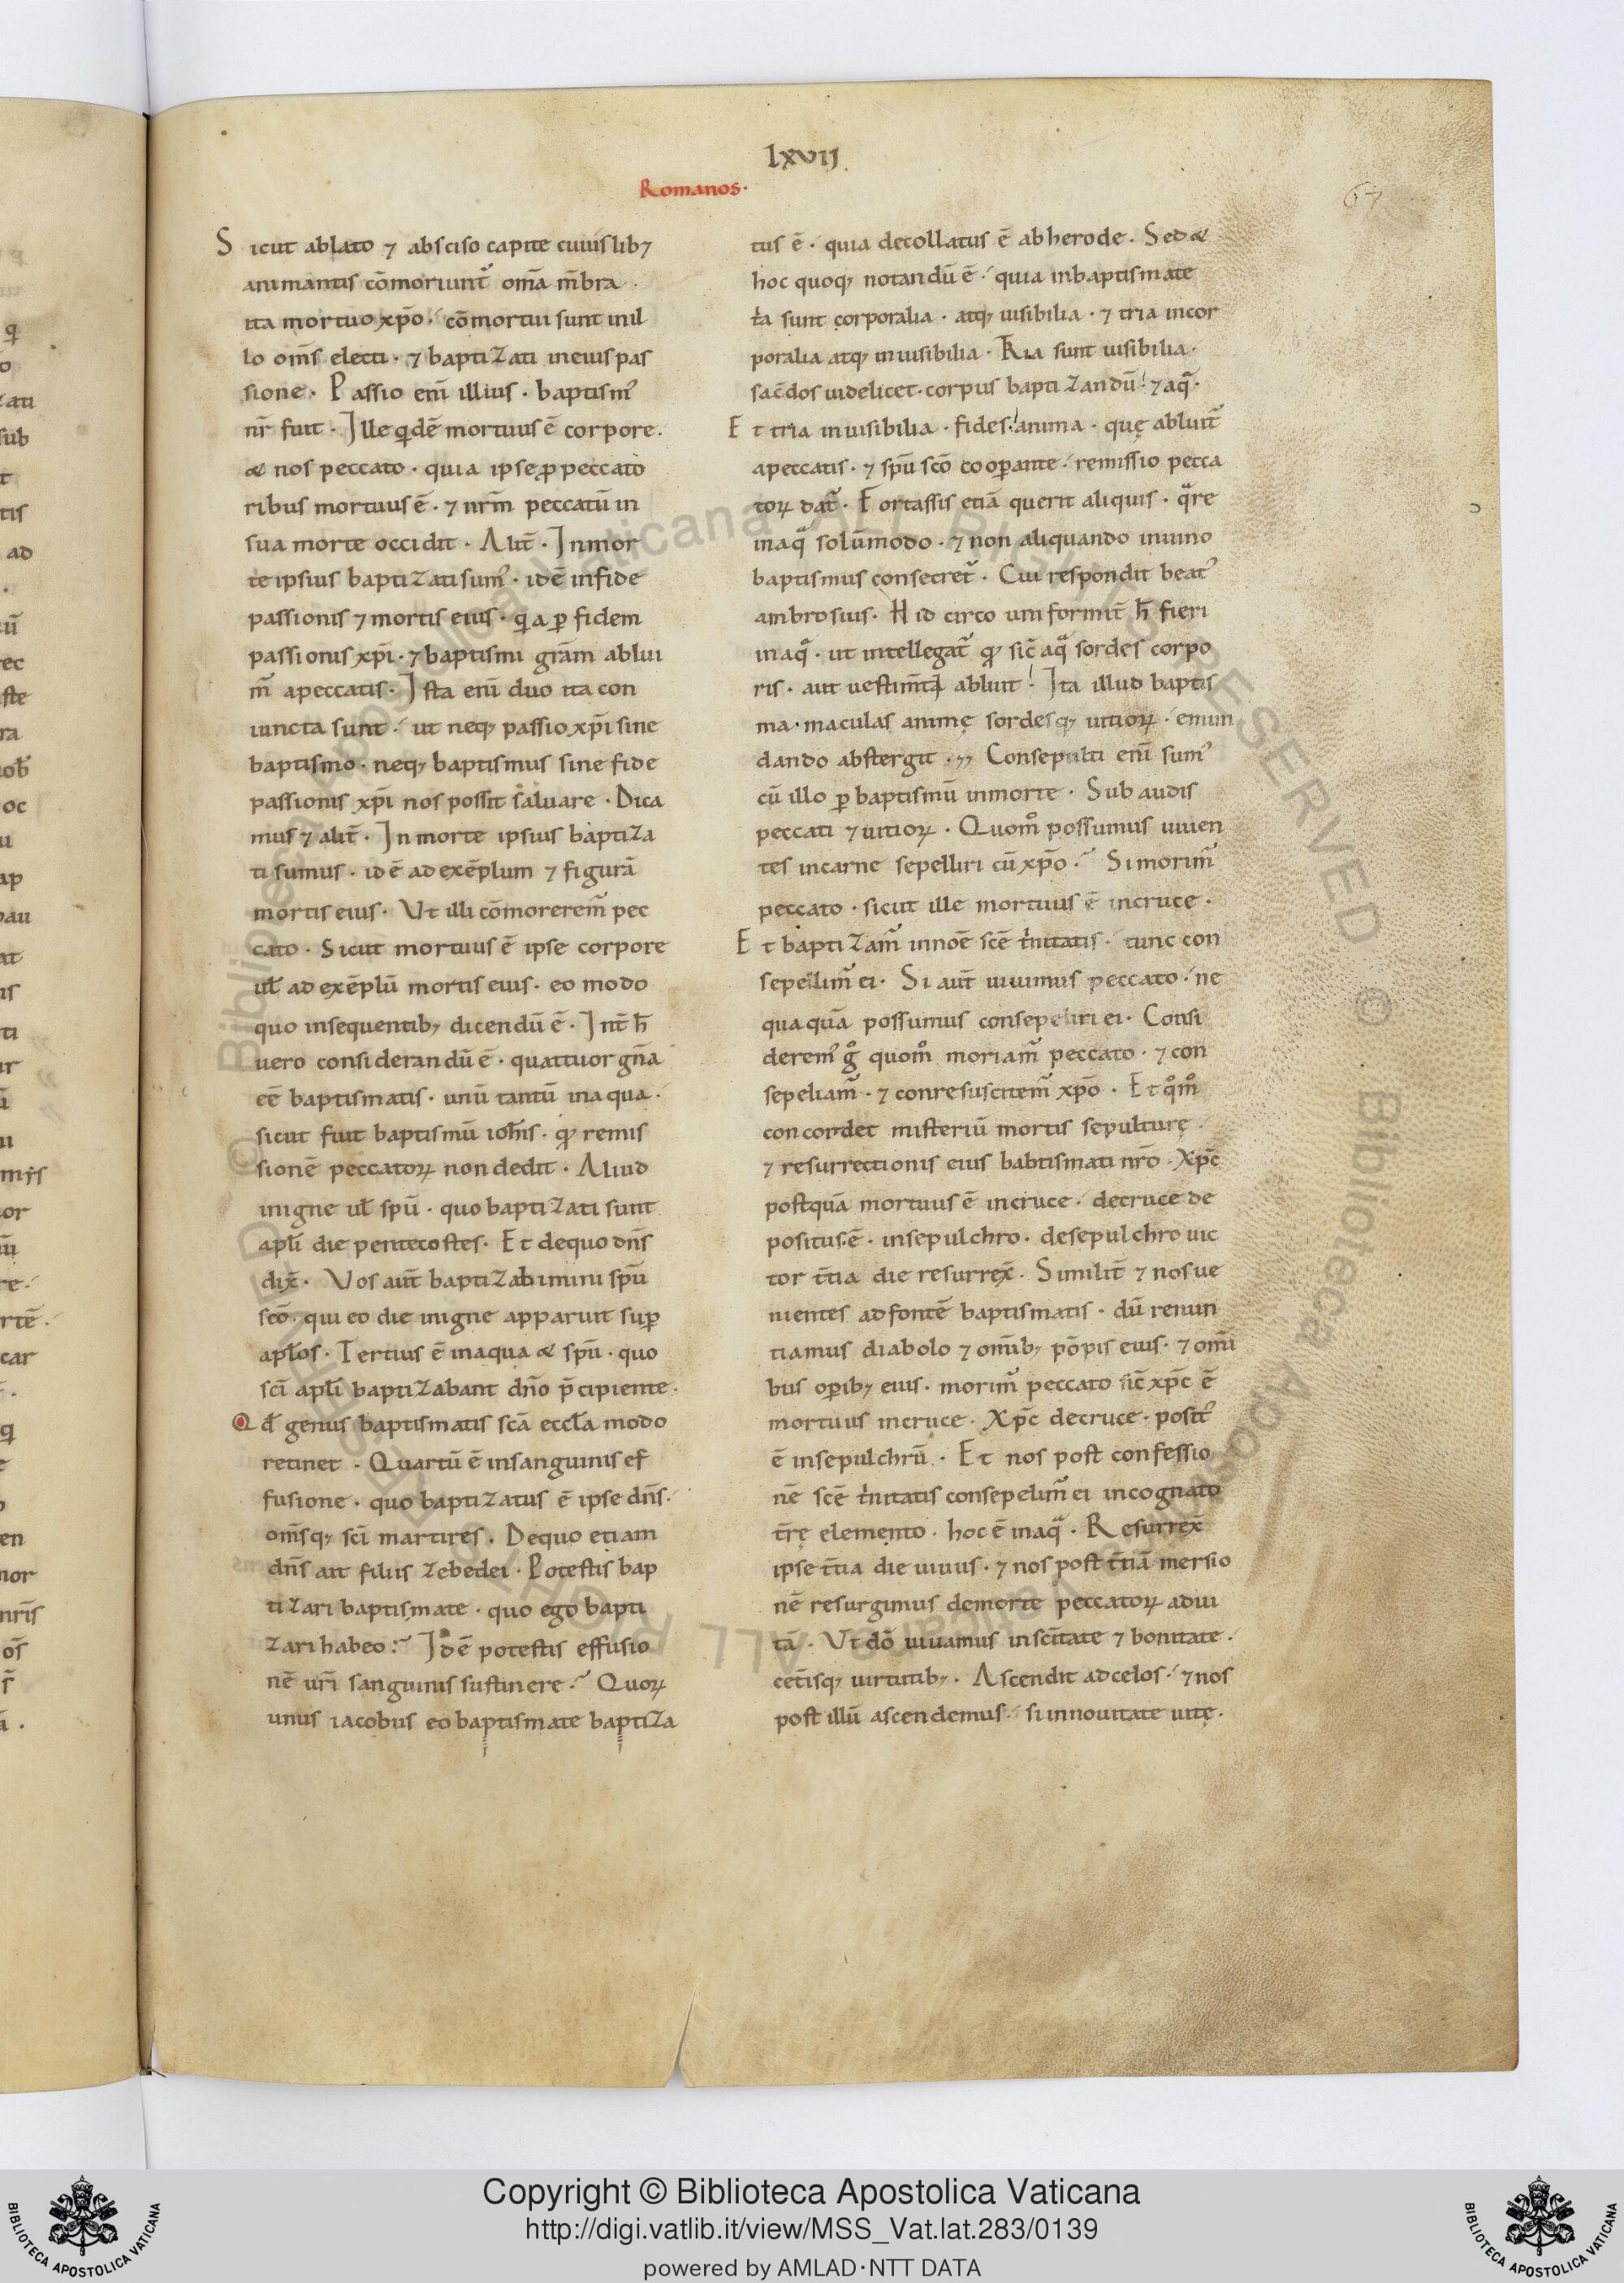 lxvij
Romanos·
67
Sicut ablato ⁊ absciso capite cuiuslib⁊
animantis cōmoriunt᷑ om̄a m̄bra·
ita mortuo xp̄o· cōmortui sunt inil
lo om̄s electi· ⁊ baptizati ineius pas
sione· Passio eni᷑ illius· baptism᷒
nr̄ fuit· Ille qdē mortuus ē corpore·
& nos peccato· quia ipse ꝓ peccato
ribus mortuus ē· ⁊ nrm̄ peccatū in
sua morte occidit· Alit̄· Inmor
te ipsius baptizati sum᷒· idē infide
passionis ⁊ mortis eius· qa ꝑ fidem
passionis xp̄i· ⁊ baptismi grām ablui
m᷑ apeccatis· Ista eni᷑ duo ita con
iuncta sunt· ut neq; passio xp̄i sine
baptismo· neq; baptismus sine fide
passionis xp̄i nos possit saluare· Dica
mus ⁊ alit̄· In morte ipsius baptiza
ti sumus· idē ad exēplum ⁊ figurā
mortis eius· Vt illi cōmorerem᷑ pec
cato· Sicut mortuus ē ipse corpore
ul̄ ad exēplū mortis eius· eo modo
quo insequentib; dicendū ē· Int̄ h̄
uero considerandū ē· quattuor gn̄a
eē baptismatis· unū tantū inaqua·
sicut fuit baptismū ioh̄is· ꝙ remis
sionē peccatoꝝ non dedit· Aliud
inigne ul̄ spū· quo baptizati sunt
apl̄i die pentecostes· Et dequo dn̄s
dix̄· Vos aut̄ baptizabimini spū
scō· qui eo die inigne apparuit suꝑ
apl̄os· Tertius ē inaqua & spū· quo
sci᷑ apl̄i baptizabant dn̄o p̄cipiente·
Qd̄ genus baptismatis scā eccl̄a modo
retinet· Quartū ē insanguinis ef
fusione· quo baptizatus ē ipse dn̄s·
om̄sq; sci᷑ martires· Dequo etiam
dn̄s ait filiis zebedei· Potestis bap
tizari baptismate· quo ego bapti
zari habeo? Idē potestis effusio
nē ur̄i sanguinis sustinere? Quoꝝ
unus iacobus eo baptismate baptiza
tus ē· quia decollatus ē abherode· Sed &
hoc quoq; notandū ē· quia inbaptismate
tͥa sunt corporalia· atq; uisibilia· ⁊ tria incor
poralia atq; inuisibilia· Tria sunt uisibilia·
sac̄dos uidelicet· corpus baptizandū· ⁊ aqᷓ·
Et tria inuisibilia· fides· anima· quę abluit᷑
apeccatis· ⁊ spū scō cooꝑante· remissio pecca
toꝝ dat᷑· Fortassis etiā querit aliquis· qᷓre
inaqᷓ solūmodo· ⁊ non aliquando inuino
baptismus consecret᷑· Cui respondit beat᷒
ambrosius· Hid circo uniformit̄ h̄ fieri
inaqᷓ· ut intellegat᷑ ꝙ sic̄ aqᷓ sordes corpo
ris· aut uestim̄ti abluit· Ita illud baptis
ma· maculas animę sordesq; uitioꝝ· emun
dando abstergit· Consepulti eni᷑ sum᷒
cū illo ꝑ baptismū inmorte· Sub audis
peccati ⁊ uitioꝝ· Quom̊ possumus uiuen
tes incarne sepelliri cū xp̄o? Si morim᷑
peccato· sicut ille mortuus ē incruce·
Et baptizam᷑ innoē scē tͥnitatis· tunc con
sepelim᷑ ei· Si aut̄ uiuimus peccato· ne
quaquā possumus consepeliri ei· Consi
derem᷒ g̊ quom̊ moriam᷑ peccato· ⁊ con
sepeliam᷑· ⁊ conresuscitem᷑ xp̄o· Et q̊m̊
concordet misteriū mortis sepulturę·
⁊ resurrectionis eius babtismati nr̄o· Xp̄c
postquā mortuus ē incruce· decruce de
positus·ē· insepulchro· desepulchro uic
tor t̄tia die resurrex̄· Similit̄ ⁊ nos ue
nientes adfontē baptismatis· dū renun
tiamus diabolo ⁊ om̄ib; pōpis eius· ⁊ omi᷑
bus oꝑib; eius· morim᷑ peccato sic̄ xp̄c ē
mortuus incruce· Xp̄c decruce· posit᷒
ē insepulchrū· Et nos post confessio
nē scē tͥnitatis consepelim᷑ ei incognato
t̄rę elemento· hoc ē inaqᷓ· Resurrex̄
ipse t̄tia die uiuus· ⁊ nos post t̄tiā mersio
nē resurgimus demorte peccatoꝝ adui
tā· Vt dō uiuamus inscītate ⁊ bonitate·
cet̄isq; uirtutib;· Ascendit adcelos· ⁊ nos
post illū ascendemus· si innouitate uitę·
Copyright © Biblioteca Apostolica Vaticana
http://digi.vatlib.it/view/MSS_Vat.lat.283/0139
powered by AMLAD·NTT DATA
BIBLIOTECA APOSTOLICA VATICANA
BIBLIOTECA APOSTOLICA VATICANA